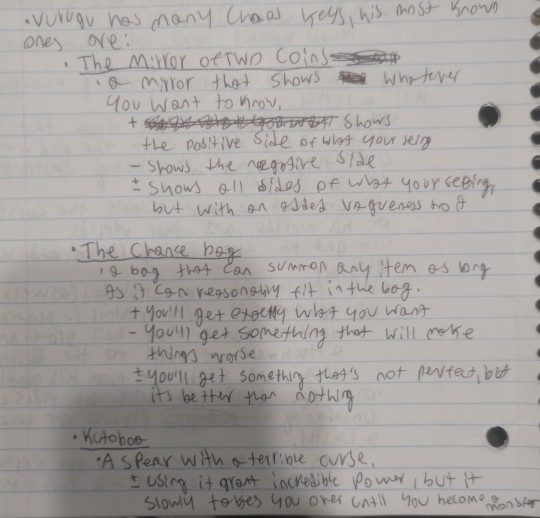 • Vurugu has many Chaos Keys, his most known
ones are:
• The Mirror of Two Coins
• a mirror that shows whatever
you want to know,
+ shows
the positive side of what your seing
- shows the negative side
± shows all sides of what your seeing,
but with an added vagueness to it
• The Chance bag
• a bag that can summon any item as long
as it can reasonably fit in the bag.
+ You'll get exactly what you want
- You'll get something that will make
things worse
± you'll get something that's not perfect, but
its better than nothing
• Kutoboa
• A spear with a terrible curse,
± using it grant incredible power, but it
slowly takes you over until you become a monster